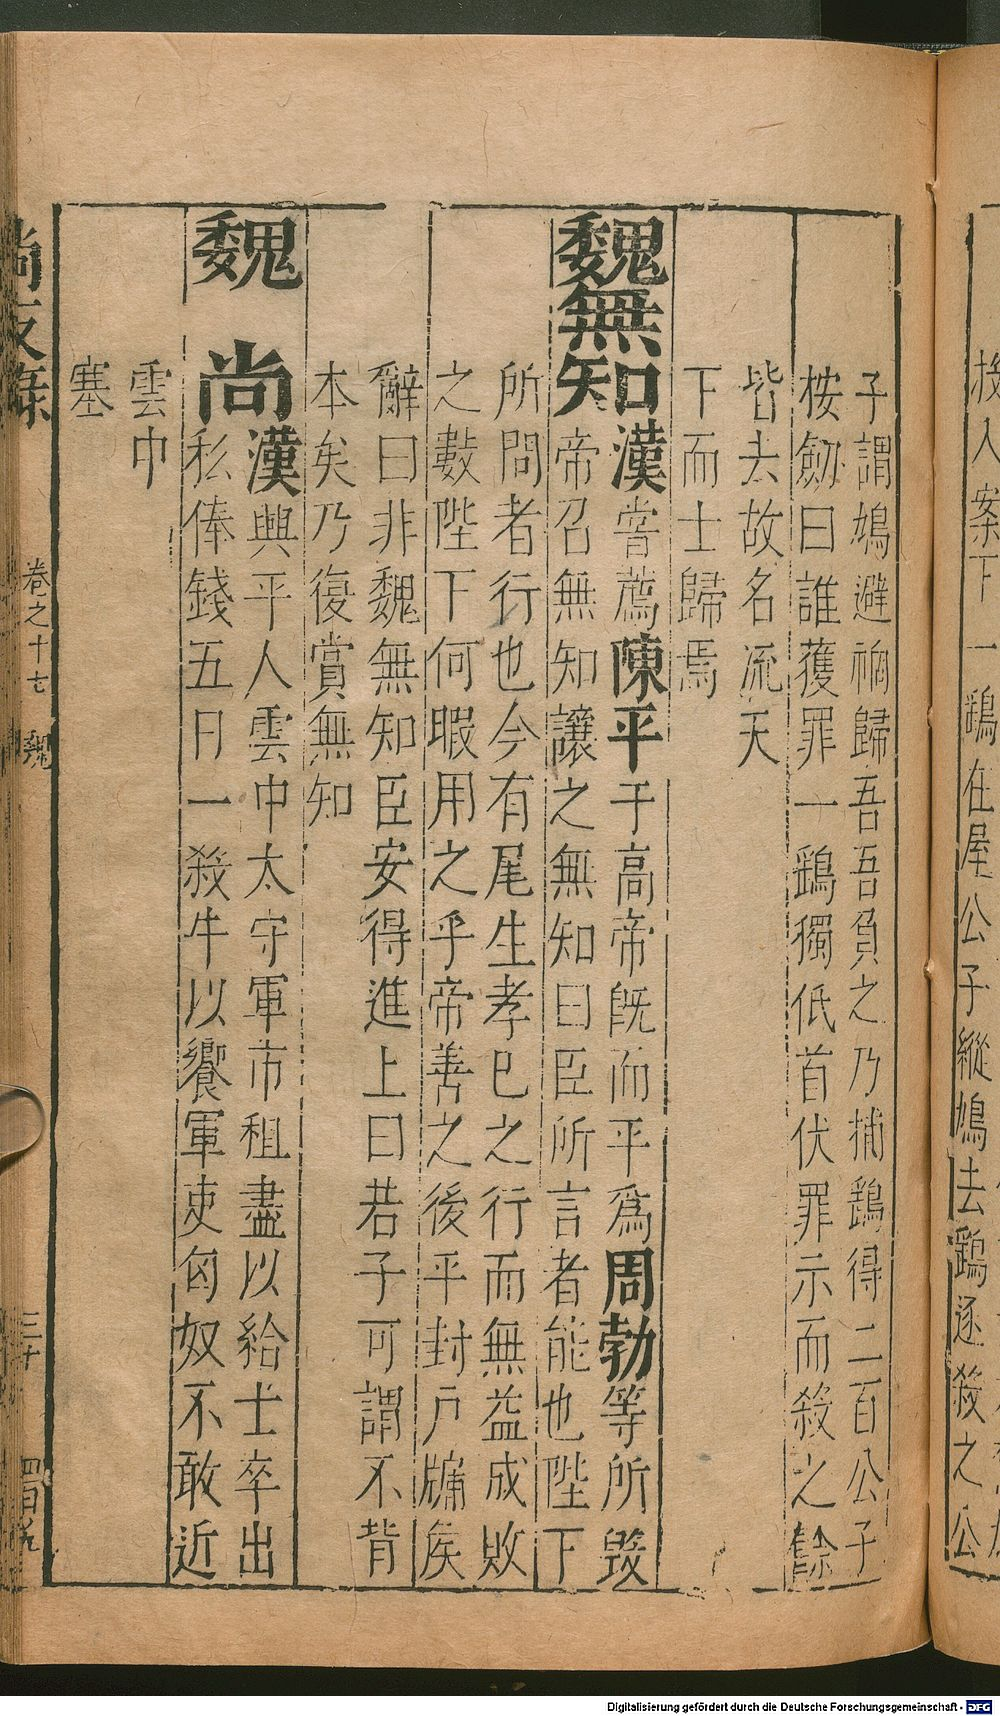 子謂鳩避禍歸吾吾負之乃捕鷂得二百公子
桉劒曰誰獲罪一鷂獨低首伏罪示而殺之餘
皆去故名流天
下而士歸焉
魏無知漢嘗薦陳平于高帝旣而平爲周勃等所毀
帝召無知讓之無知曰臣所言者能也陛下
所問者行也今有尾生孝已之行而無益成敗
之數陛下何暇用之乎帝善之後平封戶牖矦
辭曰非魏無知臣安得進上曰若子可謂不背
本矣乃復賞無知
魏尚漢興平人雲中太守軍市租盡以給士卒出
私俸錢五日一殺牛以饗軍吏匈奴不敢近
雲中
塞
卷之十七 魏 三十
投入案下一鷂在屋公子縱鳩去鷂逐殺之公
Digitalisierung gefördert durch die Deutsche Forschungsgemeinschaft - DFG